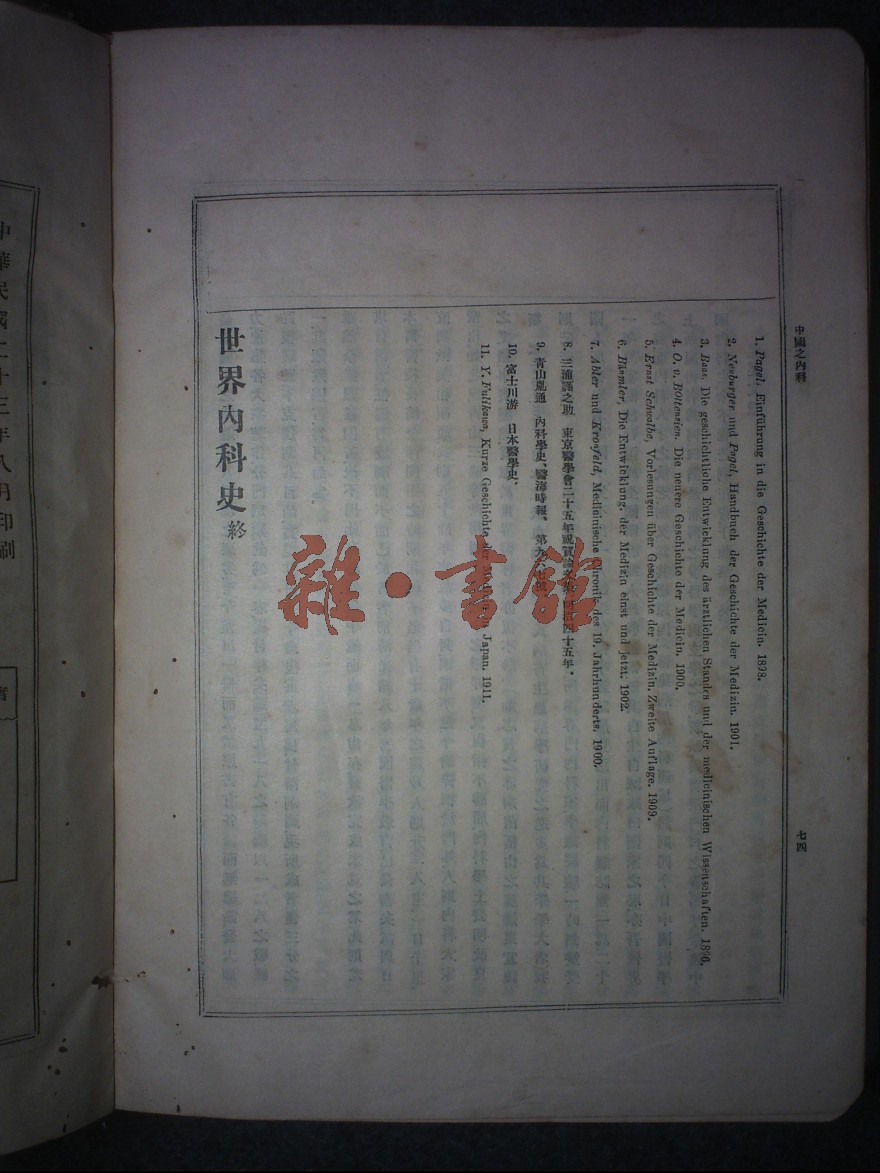 中國之內科
七四
1. Pagel. Einführung in die Geschichte der Medicin. 1898.
2. Neuburger und Pagel, Handbuch der Geschichte der Medizin. 1901.
3. Baas. Die geschichtliche Entwicklung des ärztlichen Standes und der medicinischen Wissenschaften. 1896.
4. O. v. Boltenstern. Die neuere Geschichte der Medicin. 1900.
5. Ernst Schwalbe, Vorlesungen über Geschichte der Medizin. Zweite Auflage. 1909.
6. Bäumler, Die Entwicklung, der Medizin einst und jetzt. 1902.
7. Abler und Kronfeld, Medicinische Chronik des 19. Jahrhunderts. 1900.
8. 三浦謹之助 東京醫學會二十五年祝賀論文 四十五年.
9. 青山胤通 內科學史、醫海時報、第九
10. 富士川游 日本醫學史.
11. Y. Fulikawa, Kurze Geschichte der Medizin in Japan. 1911.
世界內科史 終
雜·書館
中華民國二十三年八月印刷